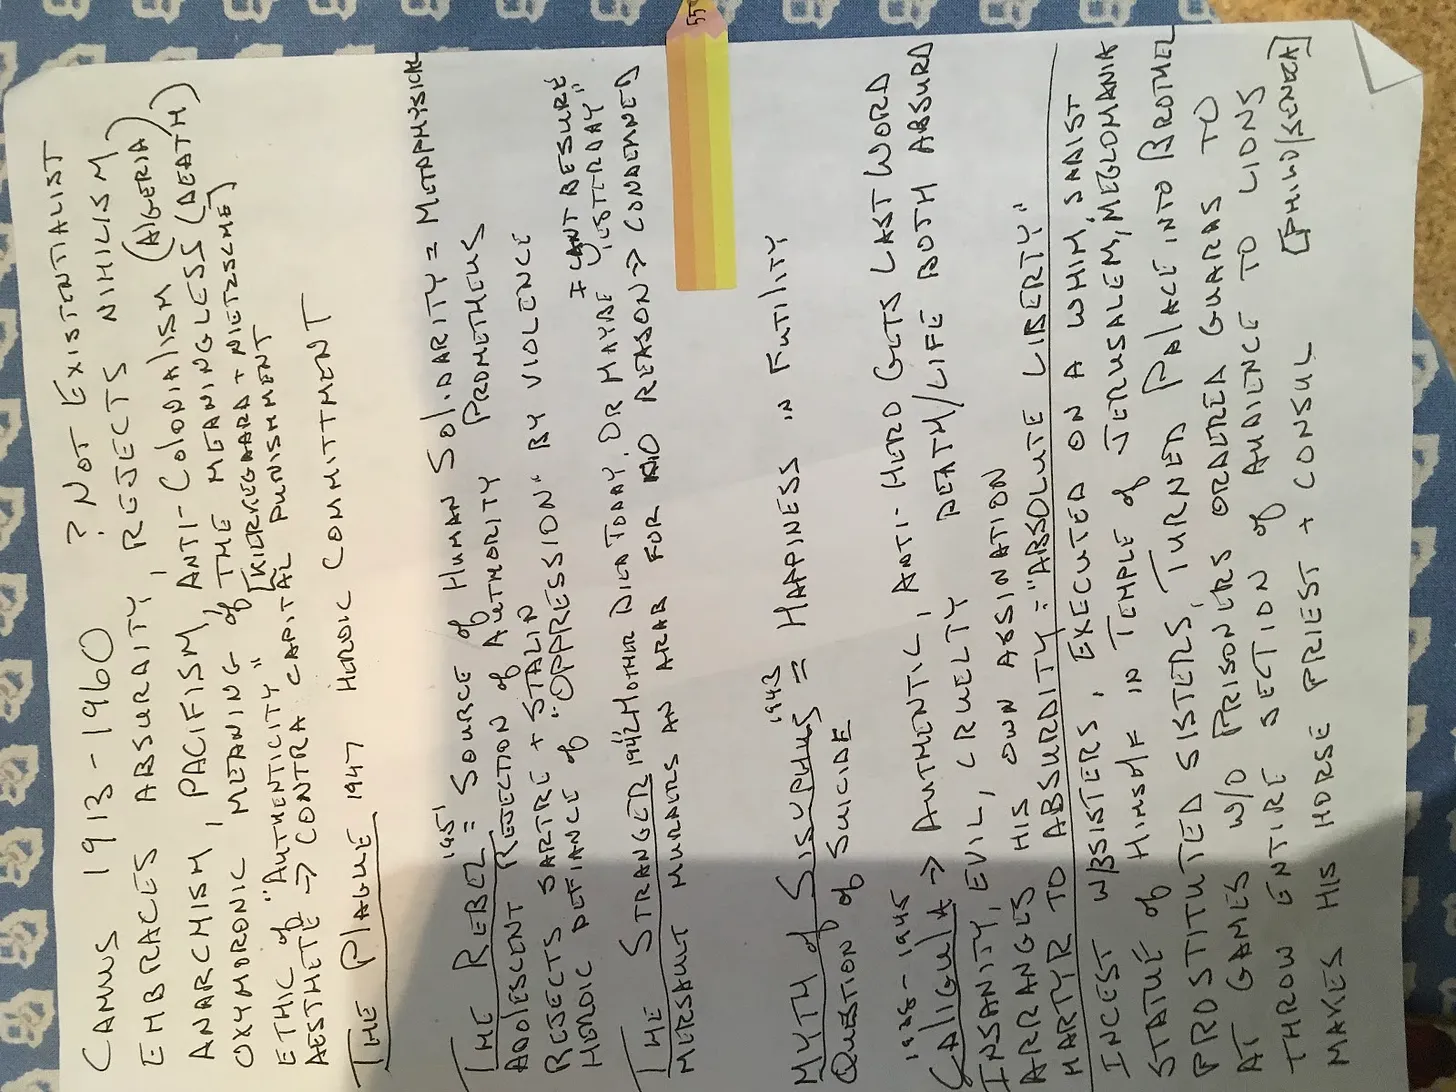 CAMUS 1913-1960 ? NOT EXISTENTIALIST
EMBRACES ABSURDITY, REJECTS NIHILISM,
ANARCHISM, PACIFISM, ANTI-COLONIALISM (ALGERIA)
OXYMORONIC MEANING of THE MEANINGLESS (DEATH)
ETHIC of "AUTHENTICITY" [KIERKEGAARD + NIETZSCHE]
AESTHETE → CONTRA CAPITAL PUNISHMENT
THE PLAGUE 1947 HEROIC COMMITTMENT
THE REBEL 1951 = SOURCE of HUMAN SOLIDARITY = METAPHYSICAL
ADOLESCENT REJECTION of AUTHORITY PROMETHEUS
REJECTS SARTRE + STALIN
HEROIC DEFIANCE of "OPPRESSION" BY VIOLENCE
THE STRANGER 1942 MOTHER DIED TODAY. OR MAYBE YESTERDAY" I CANT BE SURE
MERSAULT MURDERS AN ARAB FOR NO REASON → CONDEMNED
MYTH of SISYPHUS 1943 = HAPPINESS IN FUTILITY
QUESTION of SUICIDE
1938-1945
CALIGULA → AUTHENTIC, ANTI-HERO GETS LAST WORD
INSANITY, EVIL, CRUELTY DEATH/LIFE BOTH ABSURD
ARRANGES HIS OWN ASSINATION
MARTYR TO ABSURDITY: "ABSOLUTE LIBERTY"
INCEST W/3 SISTERS, EXECUTED ON A WHIM, SADIST
STATUE of HIMSELF IN TEMPLE of JERUSALEM, MEGLOMANIA
PROSTITUTED SISTERS, TURNED PALACE INTO BROTHEL
AT GAMES W/O PRISONERS ORDERED GUARDS TO
THROW ENTIRE SECTION of AUDIENCE TO LIONS
MAKES HIS HORSE PRIEST + CONSUL [PHILO/SENECA]
55¢